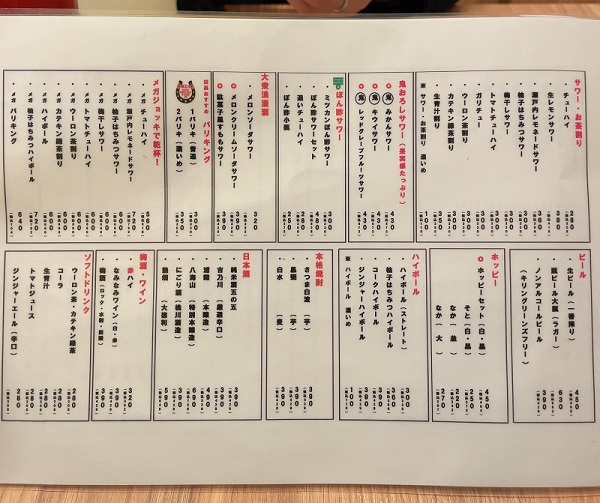 サワー・お茶割り
・チューハイ 280
・生レモンサワー 380
・瀬戸内レモネードサワー
・柚子はちみつサワー
・梅干しサワー
・トマトチューハイ
・ガリチュー
・ウーロン茶割り
・カテキン緑茶割り
・生青汁割り 350
※ サワー・お茶割り 濃いめ 100
鬼おろしサワー(果実感たっぷり)
鬼 みかんサワー 430
鬼 キウイサワー 430
鬼 レッドグレープフルーツサワー 430
ぽん酢サワー
・ミツカンぽん酢サワー 300
・ぽん酢サワーセット 480
・追いチューハイ 250
・ぽん酢小瓶 280
大衆浪漫酒
・メロンソーダサワー 320
メロンクリームソーダサワー 390
駄菓子風すももサワー 390
店長おすすめ バリキング
1バリキ(普通) 300
2バリキ(濃いめ) 350
メガジョッキで乾杯!
・メガ チューハイ 560
・メガ 瀬戸内レモネードサワー 720
・メガ 柚子はちみつサワー 600
・メガ 梅干しサワー 600
・メガ トマトチューハイ 600
・メガ ウーロン茶割り 600
・メガ カテキン緑茶割り 600
・メガ ハイボール 720
・メガ 柚子はちみつハイボール 720
・メガ バリキング 640
ビール
・生ビール(一番搾り) 450
・瓶ビール大瓶(ラガー) 630
・ノンアルコールビール 390
(キリングリーンズフリー)
ホッピー
ホッピーセット(白・黒) 450
そと(白・黒) 250
なか(並) 220
なか(大) 270
ハイボール
・ハイボール(ストレート) 300
・柚子はちみつハイボール 360
・コークハイボール
・ジンジャーハイボール
※ ハイボール 濃いめ 100
本格焼酎
・さつま白波(芋)
・黒霧(芋)
・白水(麦)
日本酒
・純米酒五の五 390
・吉乃川(厳選辛口) 390
・浦霞(本醸造) 490
・八海山(特別本醸造) 690
・にごり酒(桃川酒造) 390
・熱燗(大徳利) 590
梅酒・ワイン
・赤ハイ 320
・なみなみワイン(白・赤) 390
・梅酒(ロック・水割・炭酸) 390
ソフトドリンク
ウーロン茶・カテキン緑茶 280
コーラ 280
生青汁 280
トマトジュース 280
ジンジャーエール(辛口) 280